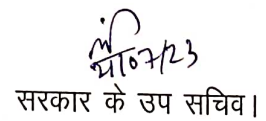 07/23
सरकार के उप सचिव।